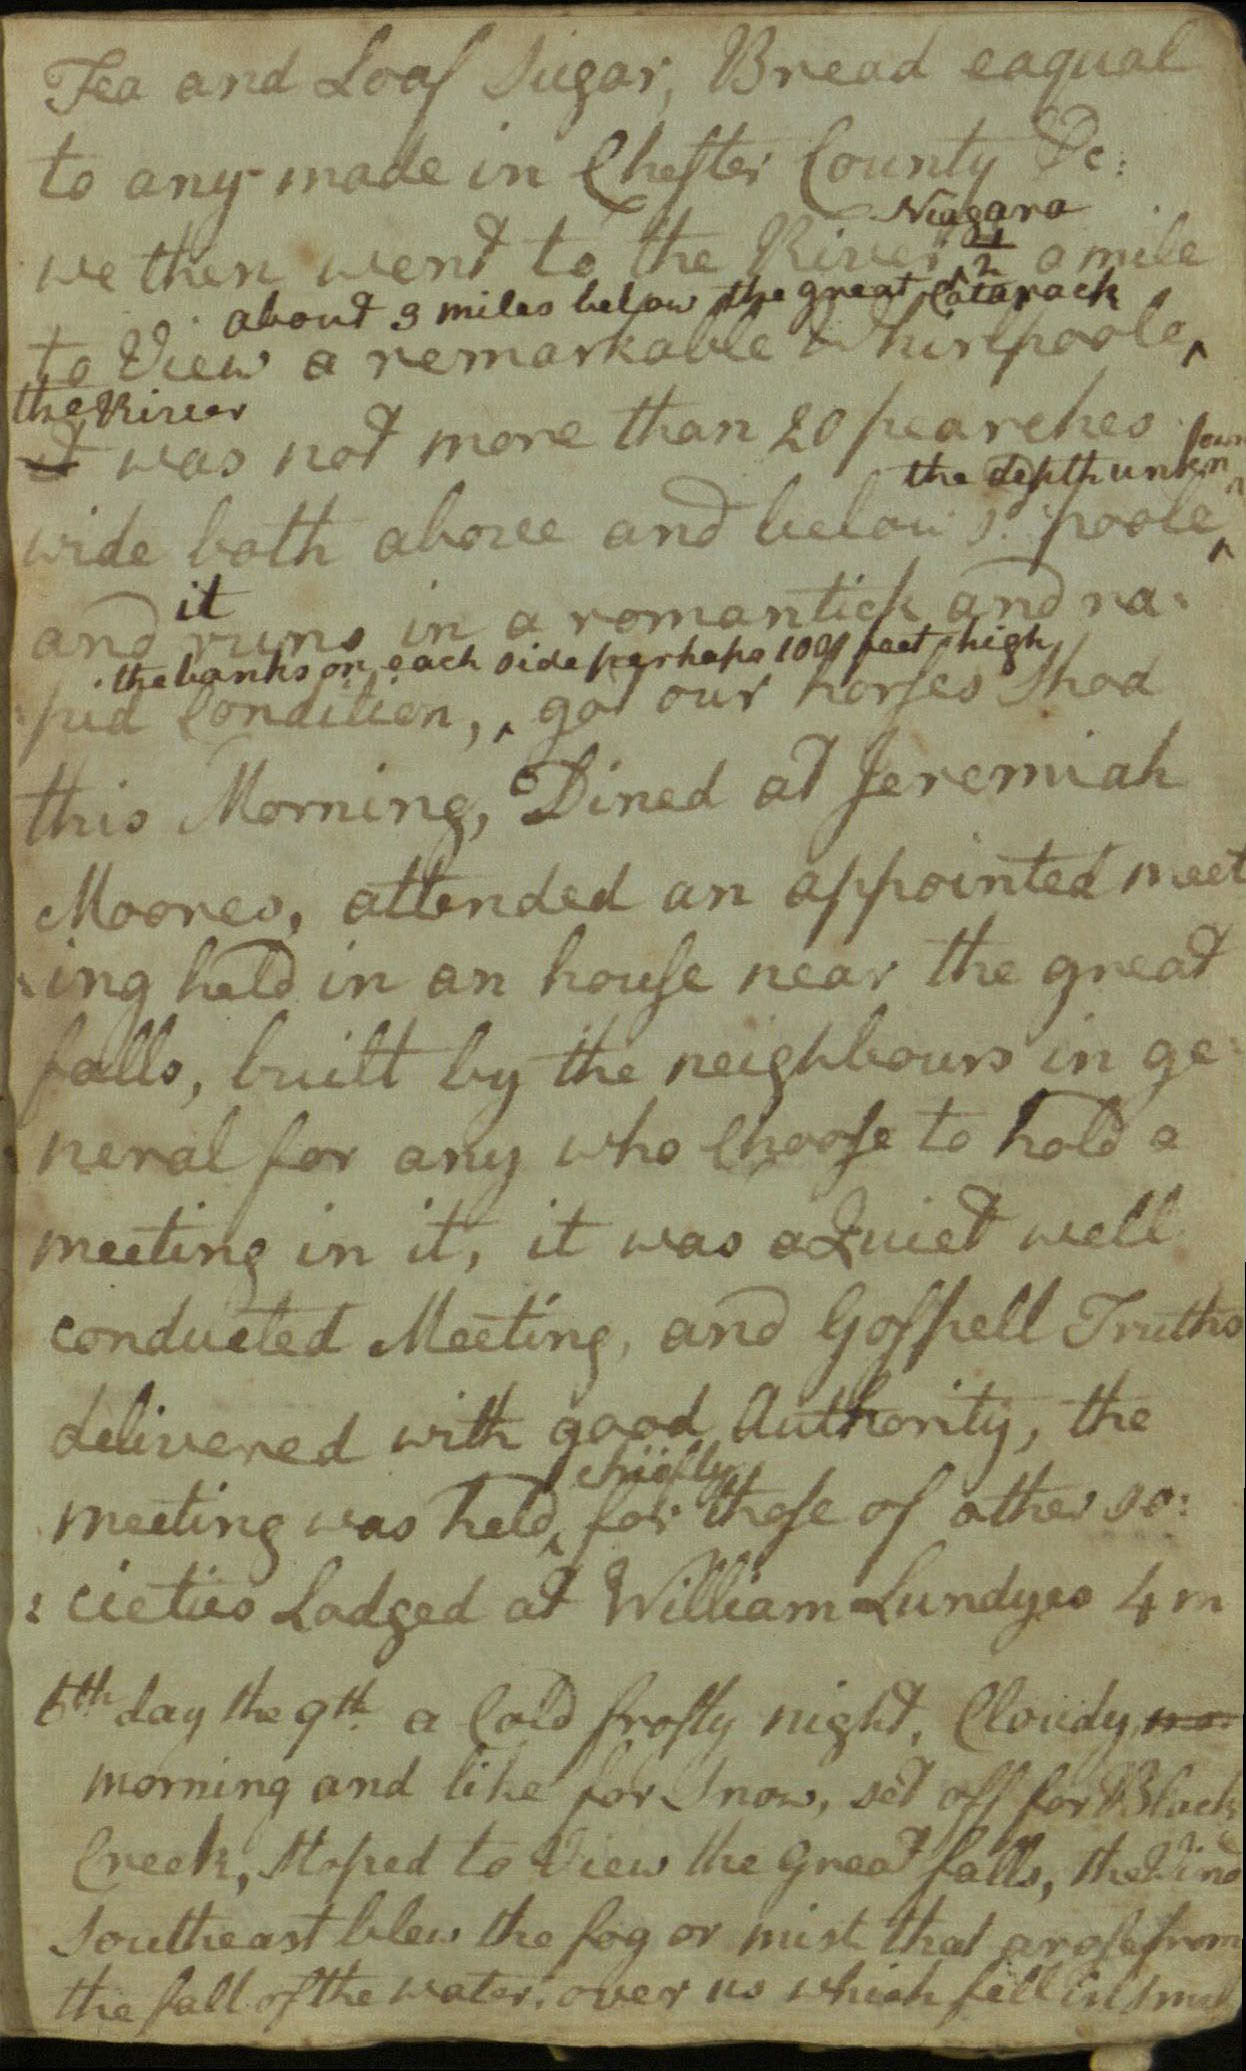 Tea and Loaf Sugar, Bread eaqual
to any made in Chester County &c:
Niagara
we then went to the River 1/2 a mile
about 3 miles below the great Catarack
to View a remarkable Whirlpoole,
the River
it was not more than 20 pearches
the depth unknown
wide both above and below s. poole,
and it runs in a romantick and ra:
the banks on each side perhaps 100 feet high
pid Condition, got our horses Shod
this Morning, Dined at Jeremiah
Moores, attended an appointed meet
ing held in an house near the great
falls, built by the neighbours in ge:
neral for any who Choose to hold a
meeting in it, it was a Quiet well
conducted Meeting, and Gospell Truths
delivered with good Authority, the
chiefly
meeting was held, for those of other so:
: cieties Lodged at William Lundyes 4 m
5th day the 9th. a Cold frosty night, Cloudy mo:
morning and like for Snow, set off for Black
Creek, Stoped to View the Great falls, the Wind
Southeast blew the fog or mist that arose from
the fall of the water, over us which fell in smal